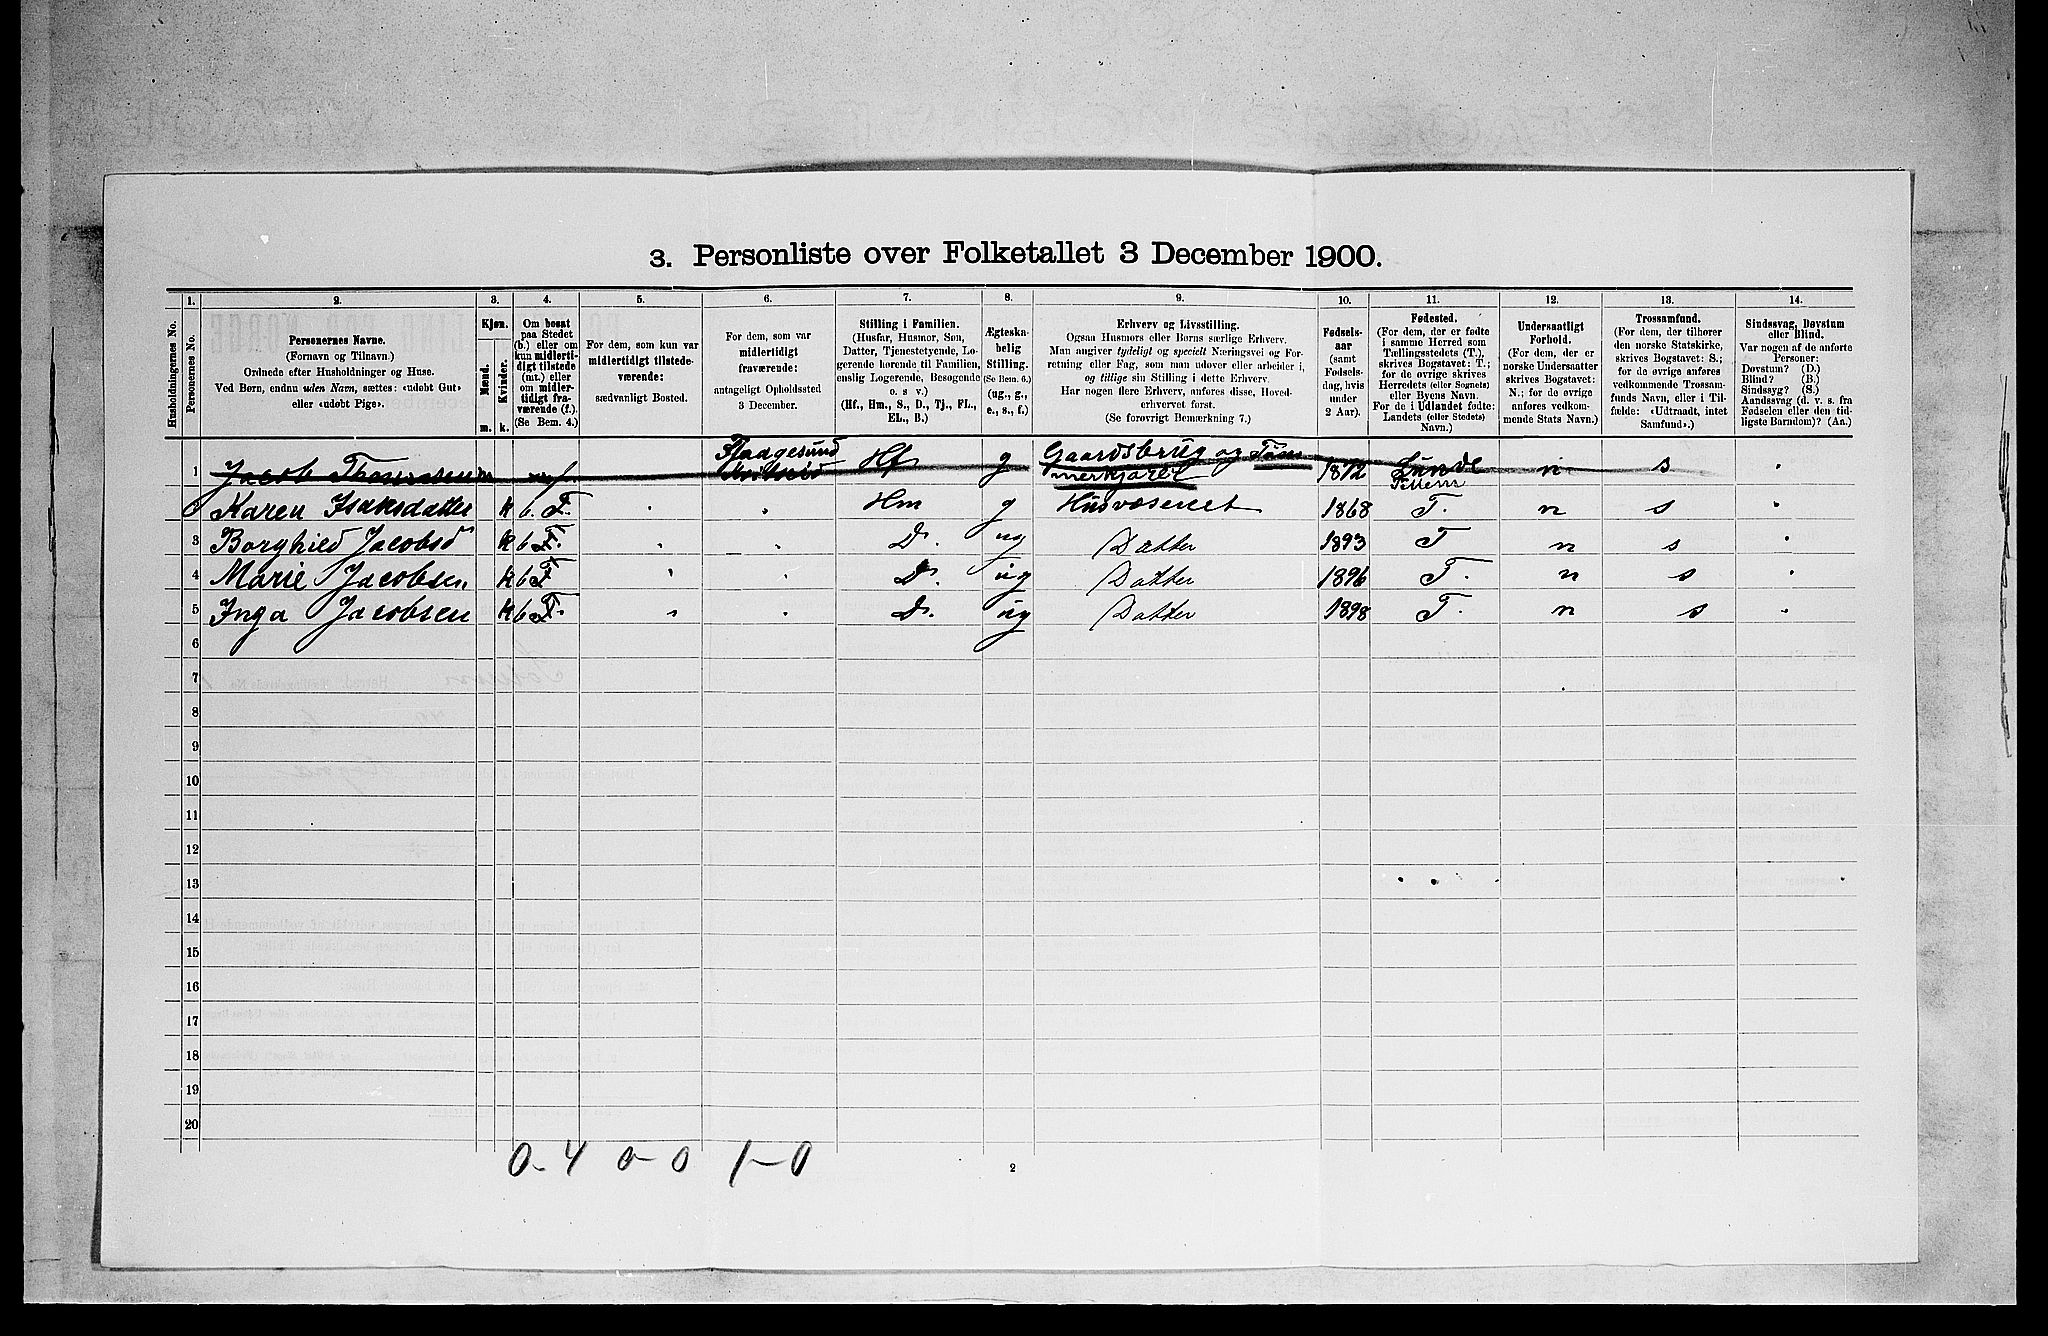 3. Personliste over Folketallet 3 December 1900.
1. 2. 3. 4. 5. 6. 7. 8. 9. 10. 11. 12. 13. 14.
Husholdningernes No.
Personernes No.
Personernes Navne.
(Fornavn og Tilnavn.)
Ordnede efter Husholdninger og Huse.
Ved Børn, endnu uden Navn, sættes: «udøbt Gut»
eller «udøbt Pige».
Kjøn.
Mænd.
Kvinder.
m. k.
Om bosat
paa Stedet
(b.) eller om
kun midlerti-
digt tilstede
(mt.) eller
om midler-
tidigt fra-
værende (f.).
(Se Bem. 4.)
For dem, som kun var
midlertidigt tilstede-
værende:
sædvanligt Bosted.
For dem, som var
midlertidigt
fraværende:
antageligt Opholdssted
3 December.
Stilling i Familien.
(Husfar, Husmor, Søn,
Datter, Tjenestetyende, Lo-
gerende hørende til Familien,
enslig Logerende, Besøgende
o. s. v.)
(Hf., Hm., S., D., Tj., FL.,
EL., B.)
Ægteska-
belig
Stilling.
(Se Bem. 6.)
(ug., g.,
e., s., f.)
Erhverv og Livsstilling.
Ogsaa Husmors eller Børns særlige Erhverv.
Man angiver tydeligt og specielt Næringsvei og For-
retning eller Fag, som man udøver eller arbeider i,
og tillige sin Stilling i dette Erhverv.
Har nogen flere Erhverv, anføres disse, Hoved-
erhvervet først.
(Se forøvrigt Bemærkning 7.)
Fødsels-
aar
(samt
Fødsels-
dag, hvis
under
2 Aar).
Fødested.
(For dem, der er fødte
i samme Herred som
Tællingsstedets (T.),
skrives Bogstavet: T.;
for de øvrige skrives
Herredets (eller Sognets)
eller Byens Navn.
For de i Udlandet fødte:
Landets (eller Stedets)
Navn.)
Undersaatligt
Forhold.
(For dem, der er
norske Undersaatter
skrives Bogstavet:
N.; for de øvrige
anføres vedkom-
mende Stats Navn.)
Trossamfund.
(For dem, der tilhører
den norske Statskirke,
skrives Bogstavet: S.;
for de øvrige anføres
vedkommende Trossam-
funds Navn, eller i Til-
fælde: «Udtraadt, intet
Samfund».)
Sindssvag, Døvstum
eller Blind.
Var nogen af de anførte
Personer:
Døvstum? (D.)
Blind? (B.)
Sindssyg? (S.)
Aandssvag (d. v. s. fra
Fødselen eller den tid-
ligste Barndom)? (Aa.)
1 Jacob Thomassen f. Hf g Gaardsbrug og Tøm
merkjører 1872 Lunde n s
Karen Isaksdatter k b T. Hm g Husvæsenet 1868 T. n s
3 Borghild Jacobsd k b D. ug Datter 1893 T n s
4 Marie Jacobsen k b D. ug Datter 1896 T. n s
5 Inga Jacobsen k b D. ug Datter 1898 T. n s
6
7
8
9
10
11
12
13
14
15
16
17
18
19
20
0-4 0-0 1-0
2